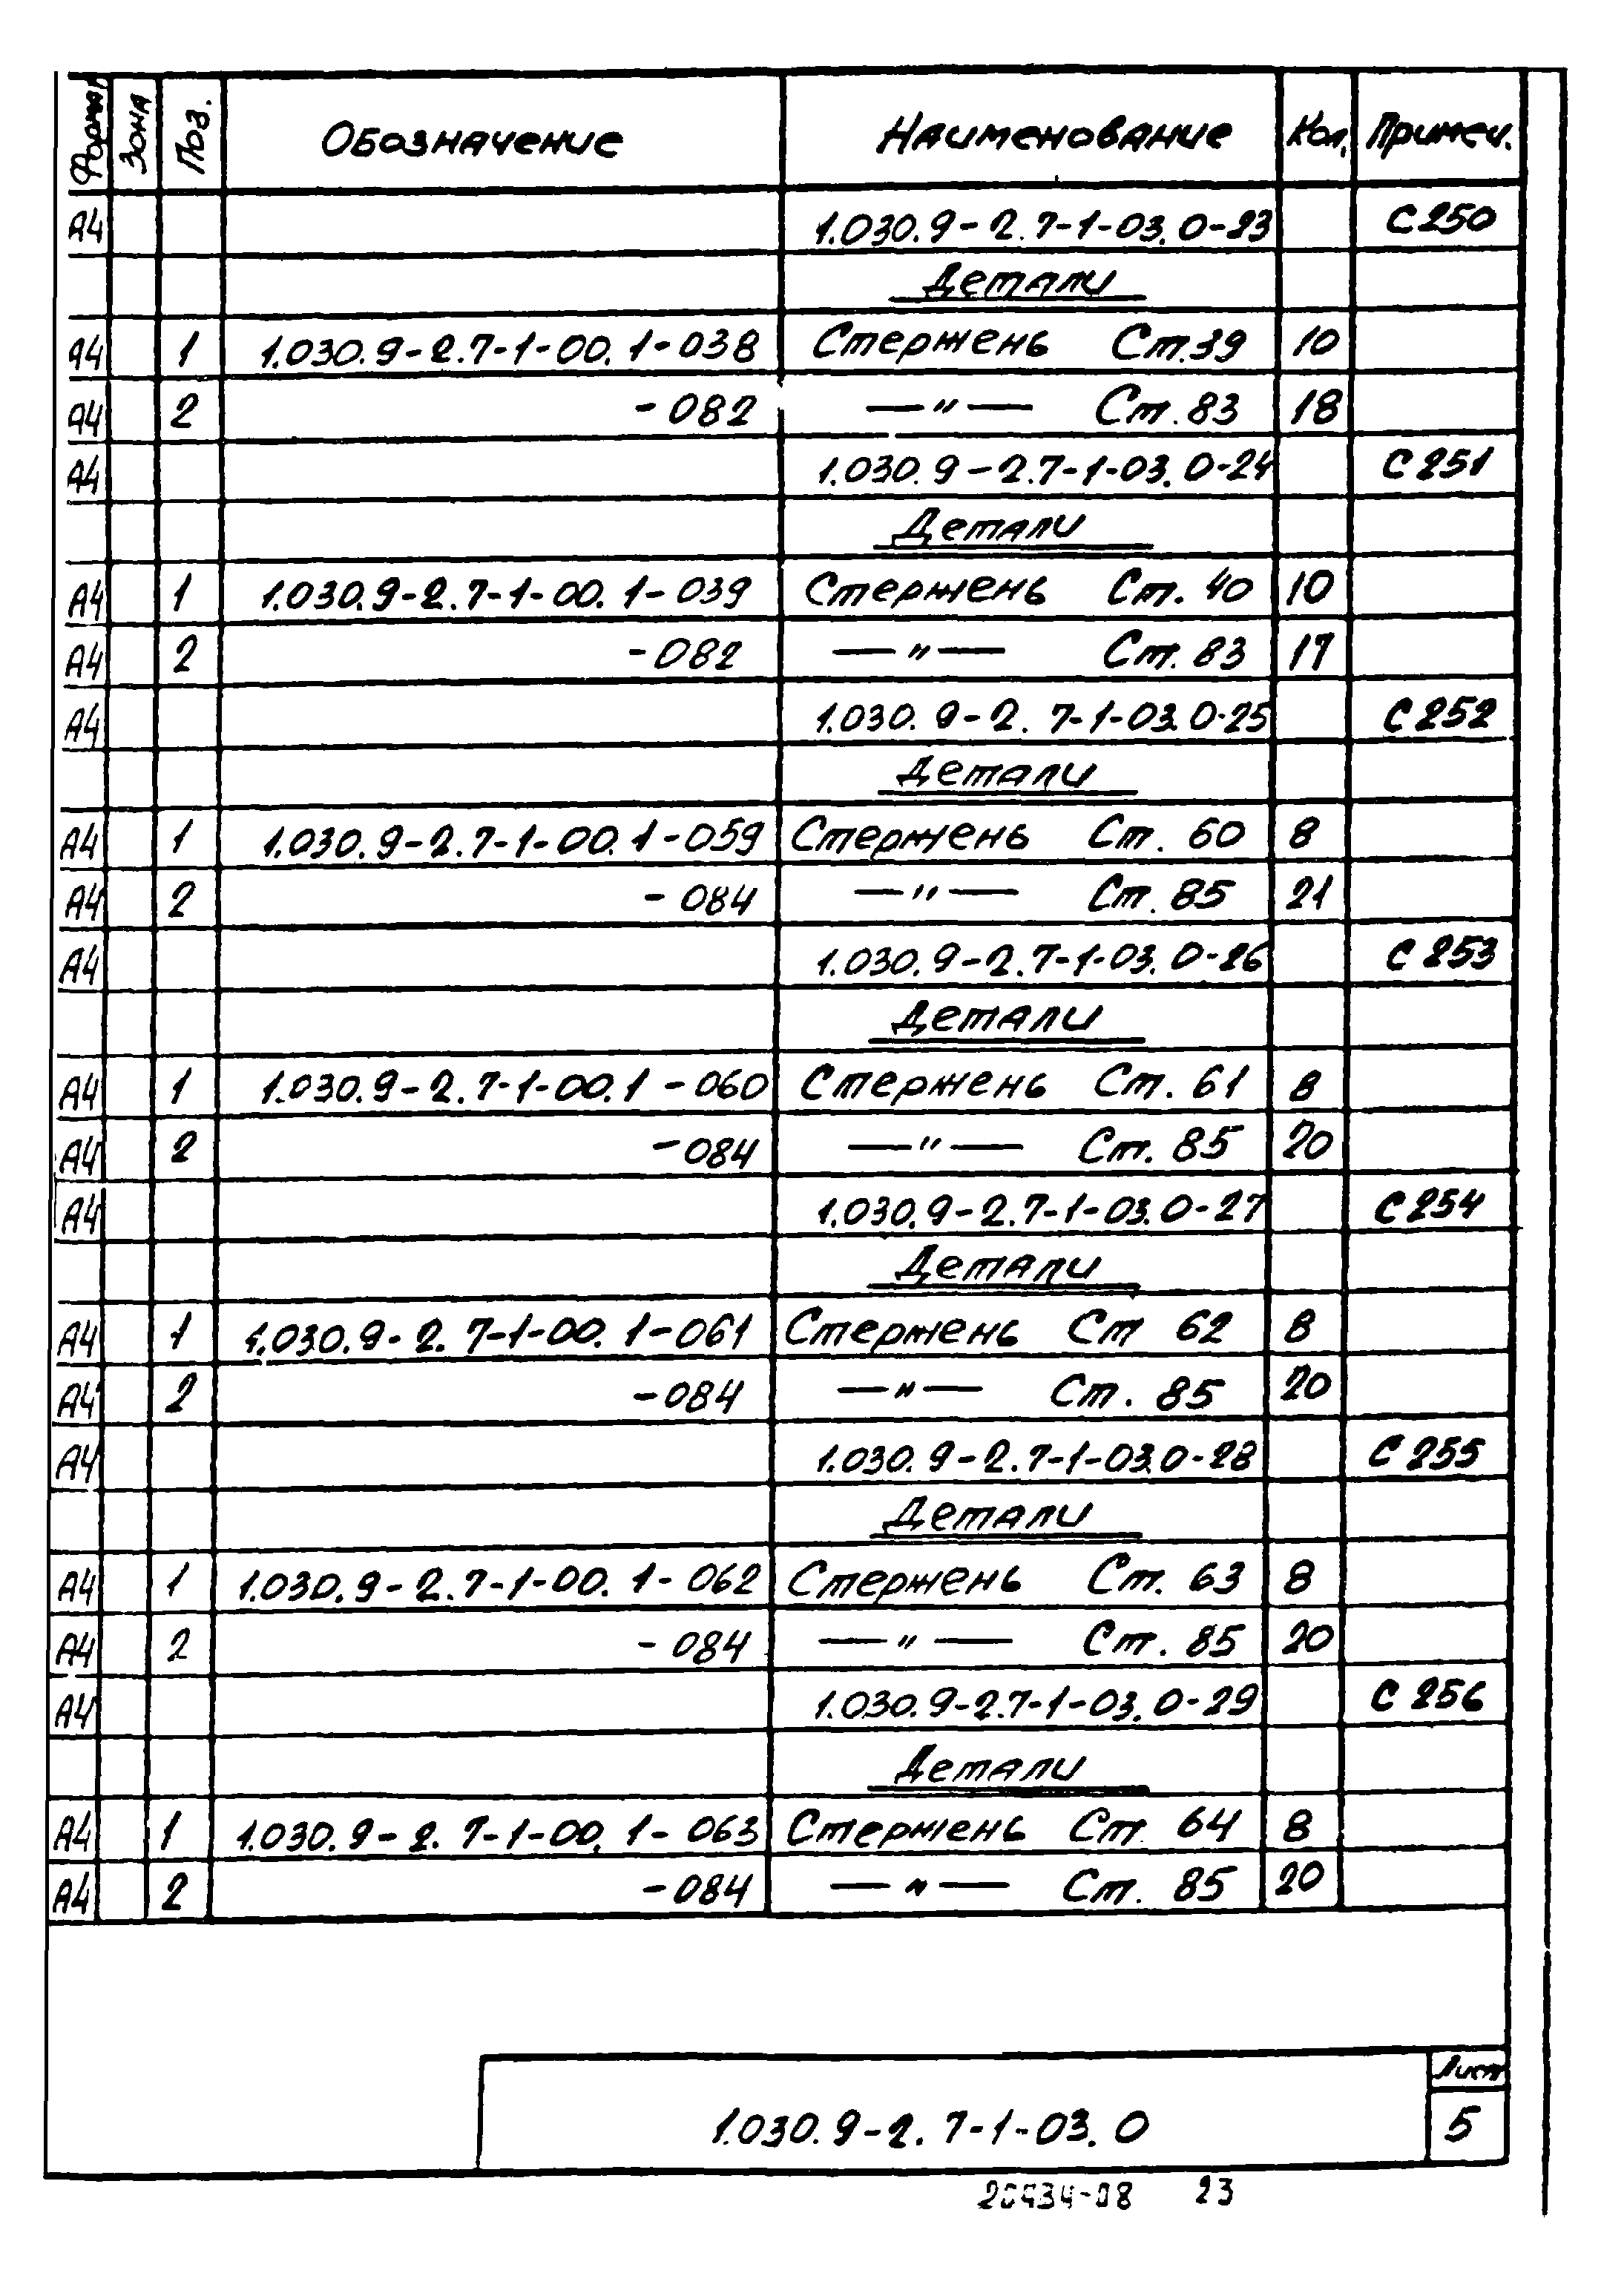 Формат Зона Поз. Обозначение Наименование Кол. Примеч.
А4 1.030.9-2.7-1-03.0-23 С250
Детали
А4 1 1.030.9-2.7-1-00.1-038 Стержень Ст.39 10
А4 2 -082 —"— Ст.83 18
А4 1.030.9-2.7-1-03.0-24 С251
Детали
А4 1 1.030.9-2.7-1-00.1-039 Стержень Ст.40 10
А4 2 -082 —"— Ст.83 17
А4 1.030.9-2.7-1-03.0-25 С252
Детали
А4 1 1.030.9-2.7-1-00.1-059 Стержень Ст.60 8
А4 2 -084 —"— Ст.85 21
А4 1.030.9-2.7-1-03.0-26 С253
Детали
А4 1 1.030.9-2.7-1-00.1-060 Стержень Ст.61 8
А4 2 -084 —"— Ст.85 20
А4 1.030.9-2.7-1-03.0-27 С254
Детали
А4 1 1.030.9-2.7-1-00.1-061 Стержень Ст 62 8
А4 2 -084 —"— Ст.85 20
А4 1.030.9-2.7-1-03.0-28 С255
Детали
А4 1 1.030.9-2.7-1-00.1-062 Стержень Ст.63 8
А4 2 -084 —"— Ст.85 20
А4 1.030.9-2.7-1-03.0-29 С256
Детали
А4 1 1.030.9-2.7-1-00.1-063 Стержень Ст.64 8
А4 2 -084 —"— Ст.85 20
Лист
1.030.9-2.7-1-03.0 5
20434-08 23